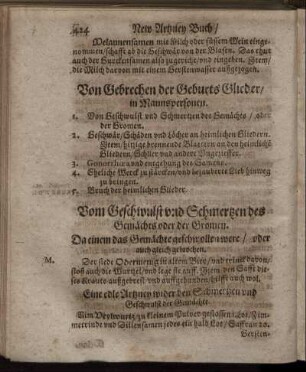 424 New Artzney Buch /
Melaunensamen mit Milch oder süssem Wein einge-
nommen / schafft ab die Geschwär von der Blasen. Das thut
auch der Gurckensamen also zugericht / vnd eingeben. Item /
die Milch darvon mit einem Gerstenwasser außgezogen.
Von Gebrechen der Geburts Glieder /
in Mannspersonen.
1. Von Geschwulst vnd Schmertzen des Gemächts / oder
der Gromen.
2. Geschwär / Schäden vnd Löcher an heimlichen Gliedern.
Item / hitzige brennende Blattern an den heimlichen
Gliedern / Schlier vnd andere Vngeziffer.
3. Gonorrhoea vnd entgehung des Samens.
4. Ehrliche Werck zu stärcken / vnd bezauberte Lieb hinweg
zu bringen.
5. Bruch der heimlichen Glieder.
Vom Geschwulst vnd Schmertzen des
Gemächts oder der Gromen.
Da einem das Gemächte geschwollen were / oder
auch gleich gebrochen.
M. Der siede Odermenig in altem Bier / vnd
stoß auch die Wurtzel / vnd lege sie auff. Item / den Safft dieses
Krauts außgepreßt vnd auffgebunden / hilfft auch wol.
Ein edle Artzney wider den Schmertzen vnd
Geschwulst des Gemächts.
Nim
mer in de vnd Dillensamen jedes ein halb Lot / Saffran
Gersten-